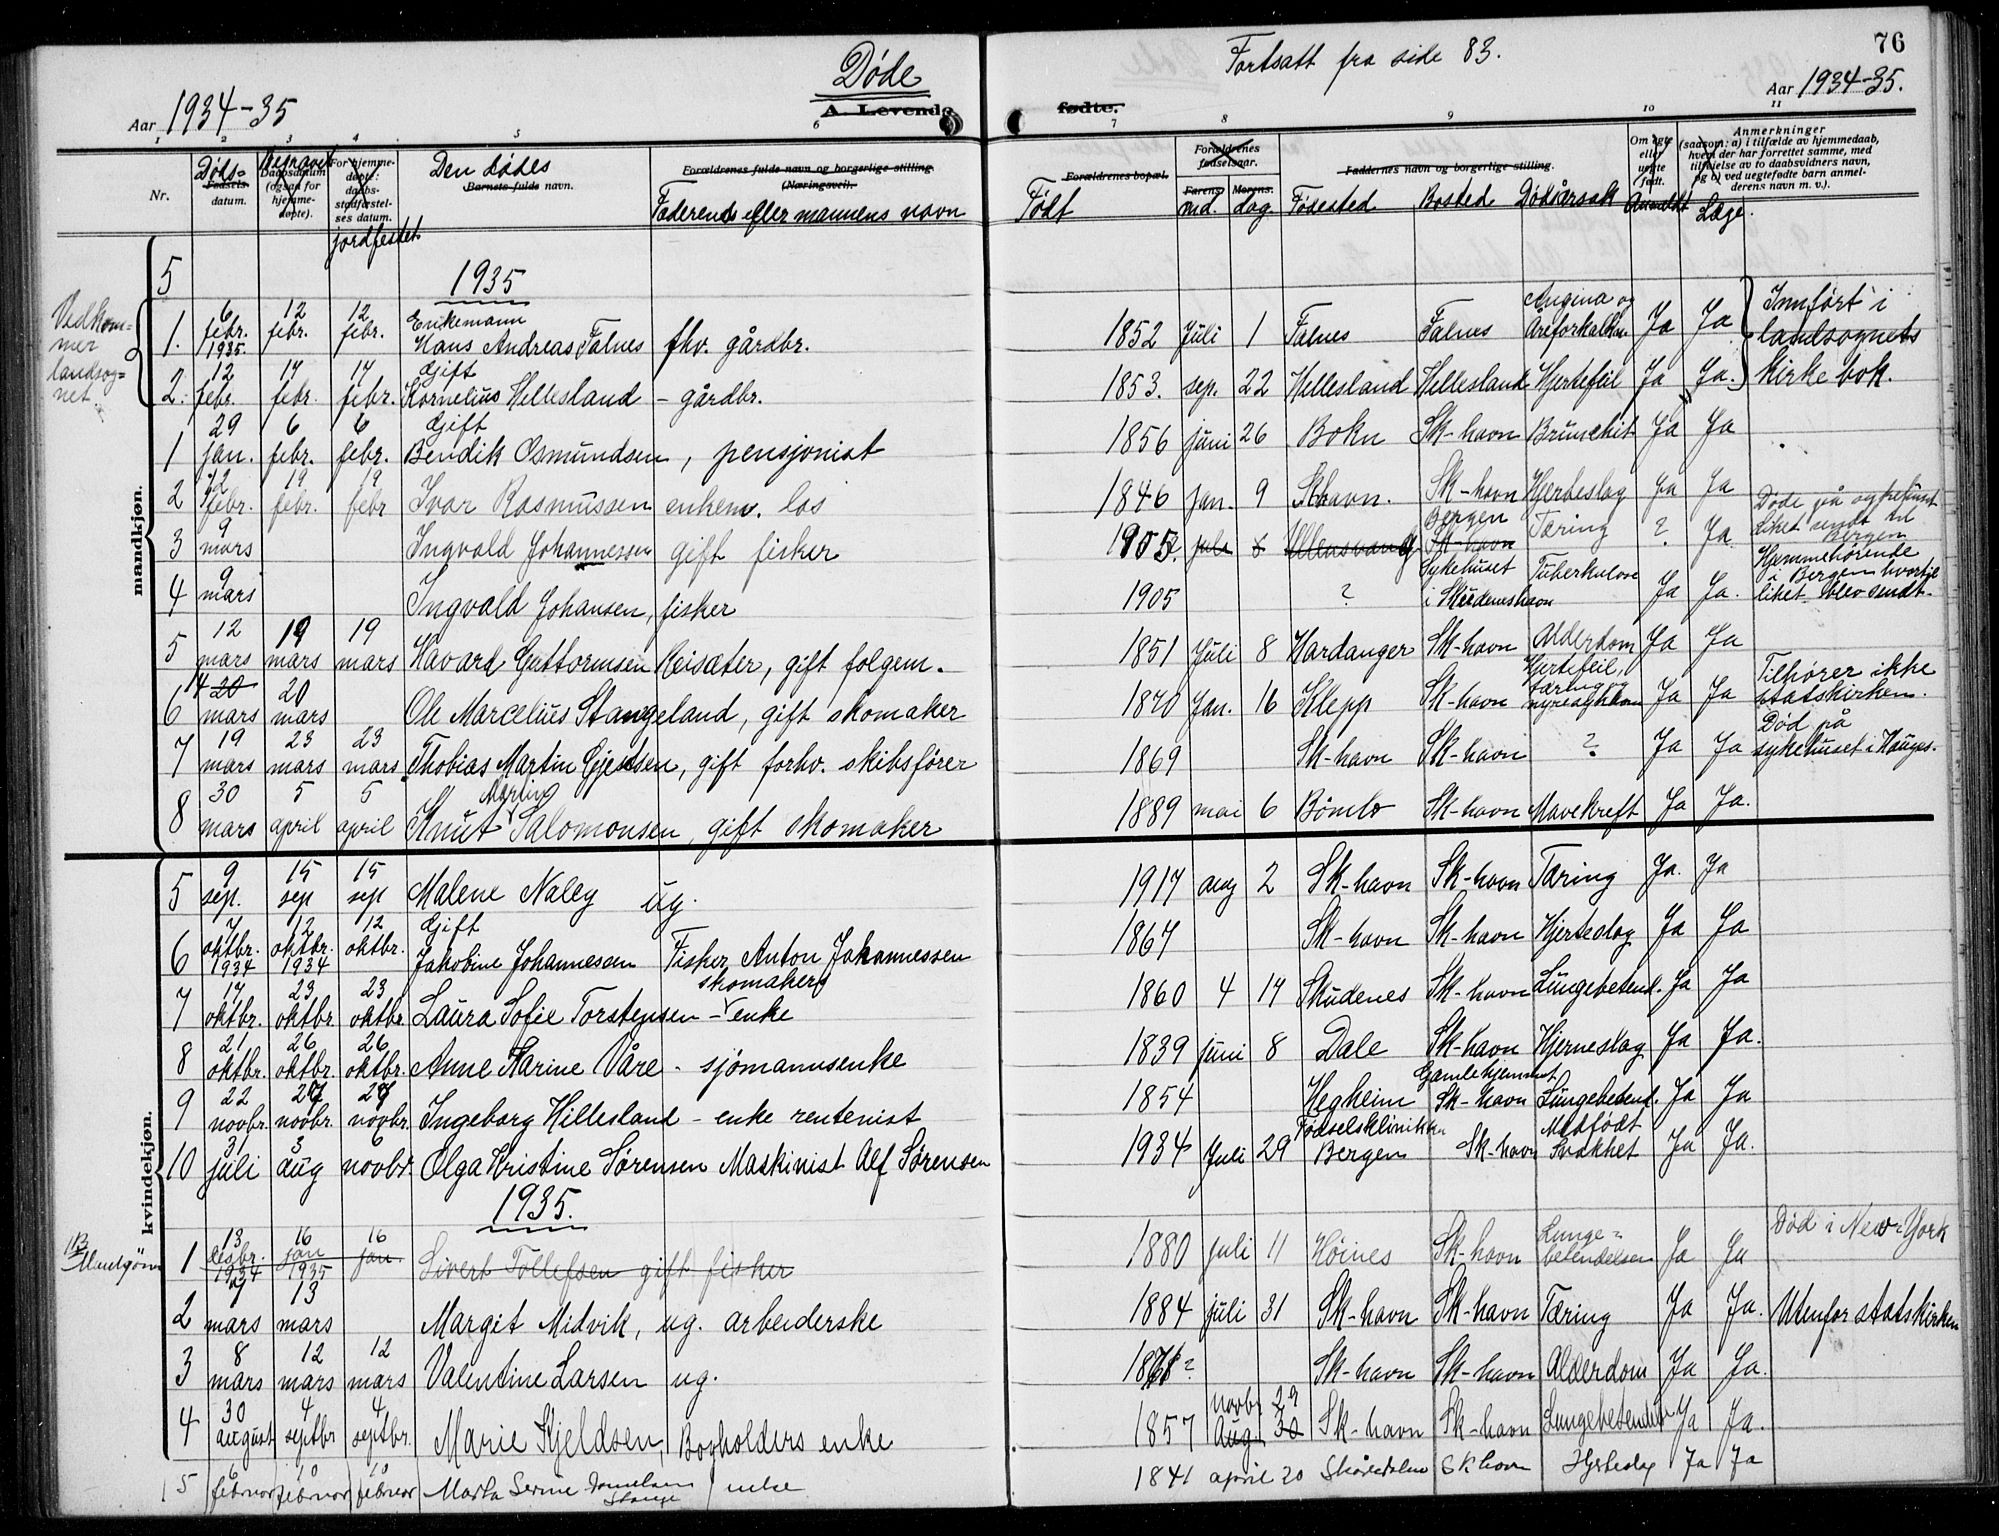 Døde
Fortsatt fra side 83.
76
Aar 1934-35
A. Levende
fødte.
Aar 1934-35.
1 2 3 4 5 6 7 8 9 10 11
Nr.
Døds=
Fødsels-
datum.
Begravet
Daabsdatum
(ogsaa for
hjemme-
døpte).
For hjemme-
døpte:
daabs-
stadfæstel-
ses datum.
jordfestet
Den dødes
Barnets fulde navn.
Forældrenes fulde navn og borgerlige stilling
(Næringsvei).
Faderens eller mannens navn
Forældrenes bopæl.
Født
Forældrenes
fødselsaar.
Farens. Morens.
md. dag.
Faddernes navn og borgerlige stilling.
Fødested Bosted Dødsårsak
Om egte
eller
uegte
født.
Anmeldt
Anmerkninger
(saasom: a) i tilfælde av hjemmedaab,
hvem der har forrettet samme, med
tilføielse av to daabsvidners navn,
og b) ved uegtefødte barn anmel-
derens navn m. v.).
Læge.
mandkjøn.
5 1935
Vedkom-
mer
landsog=
net.
1. 6 febr. 1935. 12 febr. 12 febr. Enkemann Hans Andreas Falnes fhv. gårdbr. 1852 Juli 1 Falnes Falnes Angina og Åreforkalkn Ja Ja Innført i
landsognets
kirkebok.
2. 12 febr. 17 febr. 17 febr. Gift Kornelius Hellesland - gårdbr. 1853. sep. 22 Hellesland Hellesland Hjertefeil Ja Ja.
1 29 jan. 6 febr. 6 febr. Gift Bendik Osmundsen, pensjonist 1856 juni 26 Bokn Sk-havn Ja Ja
2 12 febr. 19 febr. 19 febr Ivar Rasmussen enkem. los 1846 jan. 9 Skhavn. Sk-havn Hjerteslag Ja Ja
3 9 mars Ingvald Johannessen gift fisker 1905 Bergen Sk-havn Tæring ? Ja Døde på sykehuset
liket sendt til
Bergen
4 9 mars Ingvald Johansen, fisker 1905 ? Sykehuset i Skudeneshavn Tuberkulose Ja Ja. Hjemmehørende
i Bergen hvortil
liket blev sendt.
5 12 mars 19 mars 19 mars Havard Guttormsen Reisæter, gift folgem. 1851 Juli 8 Hardanger Sk-havn Alderdom Ja Ja
6 14 20 mars 20 mars Ole Marcelius Stangeland, gift skomaker 1870 Jan. 16 Klepp Sk-havn Hjertefeil, tæring og nyresykdom Ja Ja Tilhører ikke
statskirken.
7 19 mars 23 mars 23 mars Thobias Martin Gjertsen, gift forhv. skibsfører 1869 Sk-havn Sk-havn ? Ja Ja Død på
sykehuset i Hauges.
8 30 mars 5 april 5 april Knut Martin Salomonsen, gift skomaker 1889 mai 6 Bømlo Sk-havn Mavekreft Ja Ja.
kvindekjøn.
5 9 sep. 15 sep 15 sep Malene Naley ug. 1917 aug 2 Sk-havn Sk-havn Tæring Ja. Ja
6 7 oktbr. 1934 12 oktbr. 1934 12 oktbr. Gift Jakobine Johannessen Fisker Anton Johannessen 1867 Sk-havn Sk-havn Hjerteslag Ja Ja
7 17 oktbr. 23 oktbr 23 oktbr Laura Sofie Torstensen - skomaker enke 1860 4 14 Skudenes Sk-havn Lungebetend. Ja Ja
8 21 oktbr. 26 oktbr. 26 oktbr. Anne Karine Våre - sjømannsenke 1839 juni 8 Dale Sk-havn Hjerneslag Ja Ja.
9 22 novbr. 27 novbr. 27 novbr. Ingeborg Hillesland - enke rentenist 1854 Hegheim Gamlehjemmet Sk-havn Lungebetend. Ja Ja
10 31 juli 3 aug 6 novbr. Olga Kristine Sørensen Maskinist Alf Sørensen 1934 Juli 29 Fødselsklinikken Bergen Sk-havn Medfødt Svakhet Ja Ja.
1935.
NB
1 13 desbr. 1934 16 jan 1935 16 jan Sivert Tollefsen gift fisker 1880 juli 11 Høines Sk-havn Lunge=betendelsen Ja Ja Død i New-York
2 7 mars 13 mars Margit Midvik, ug. arbeiderske 1884 juli 31 Sk-havn Sk-havn Tæring Ja Ja. Utenfor statskirken
3 8 mars 12 mars 12 mars Valentine Larsen ug. Sk-havn Sk-havn Alderdom Ja Ja.
4 30 august 4 septbr 4 septbr. Marie Kjeldsen, Bokholders enke 1857 novbr. 29 Aug. 30 Sk-havn Sk-havn Lungebetendels Ja Ja.
5 6 februar 10 februar 10 februar Marta Serine Danielsen Stange enke 1841 april 20 Skåredalen Skhavn Hjerteslag Ja Ja